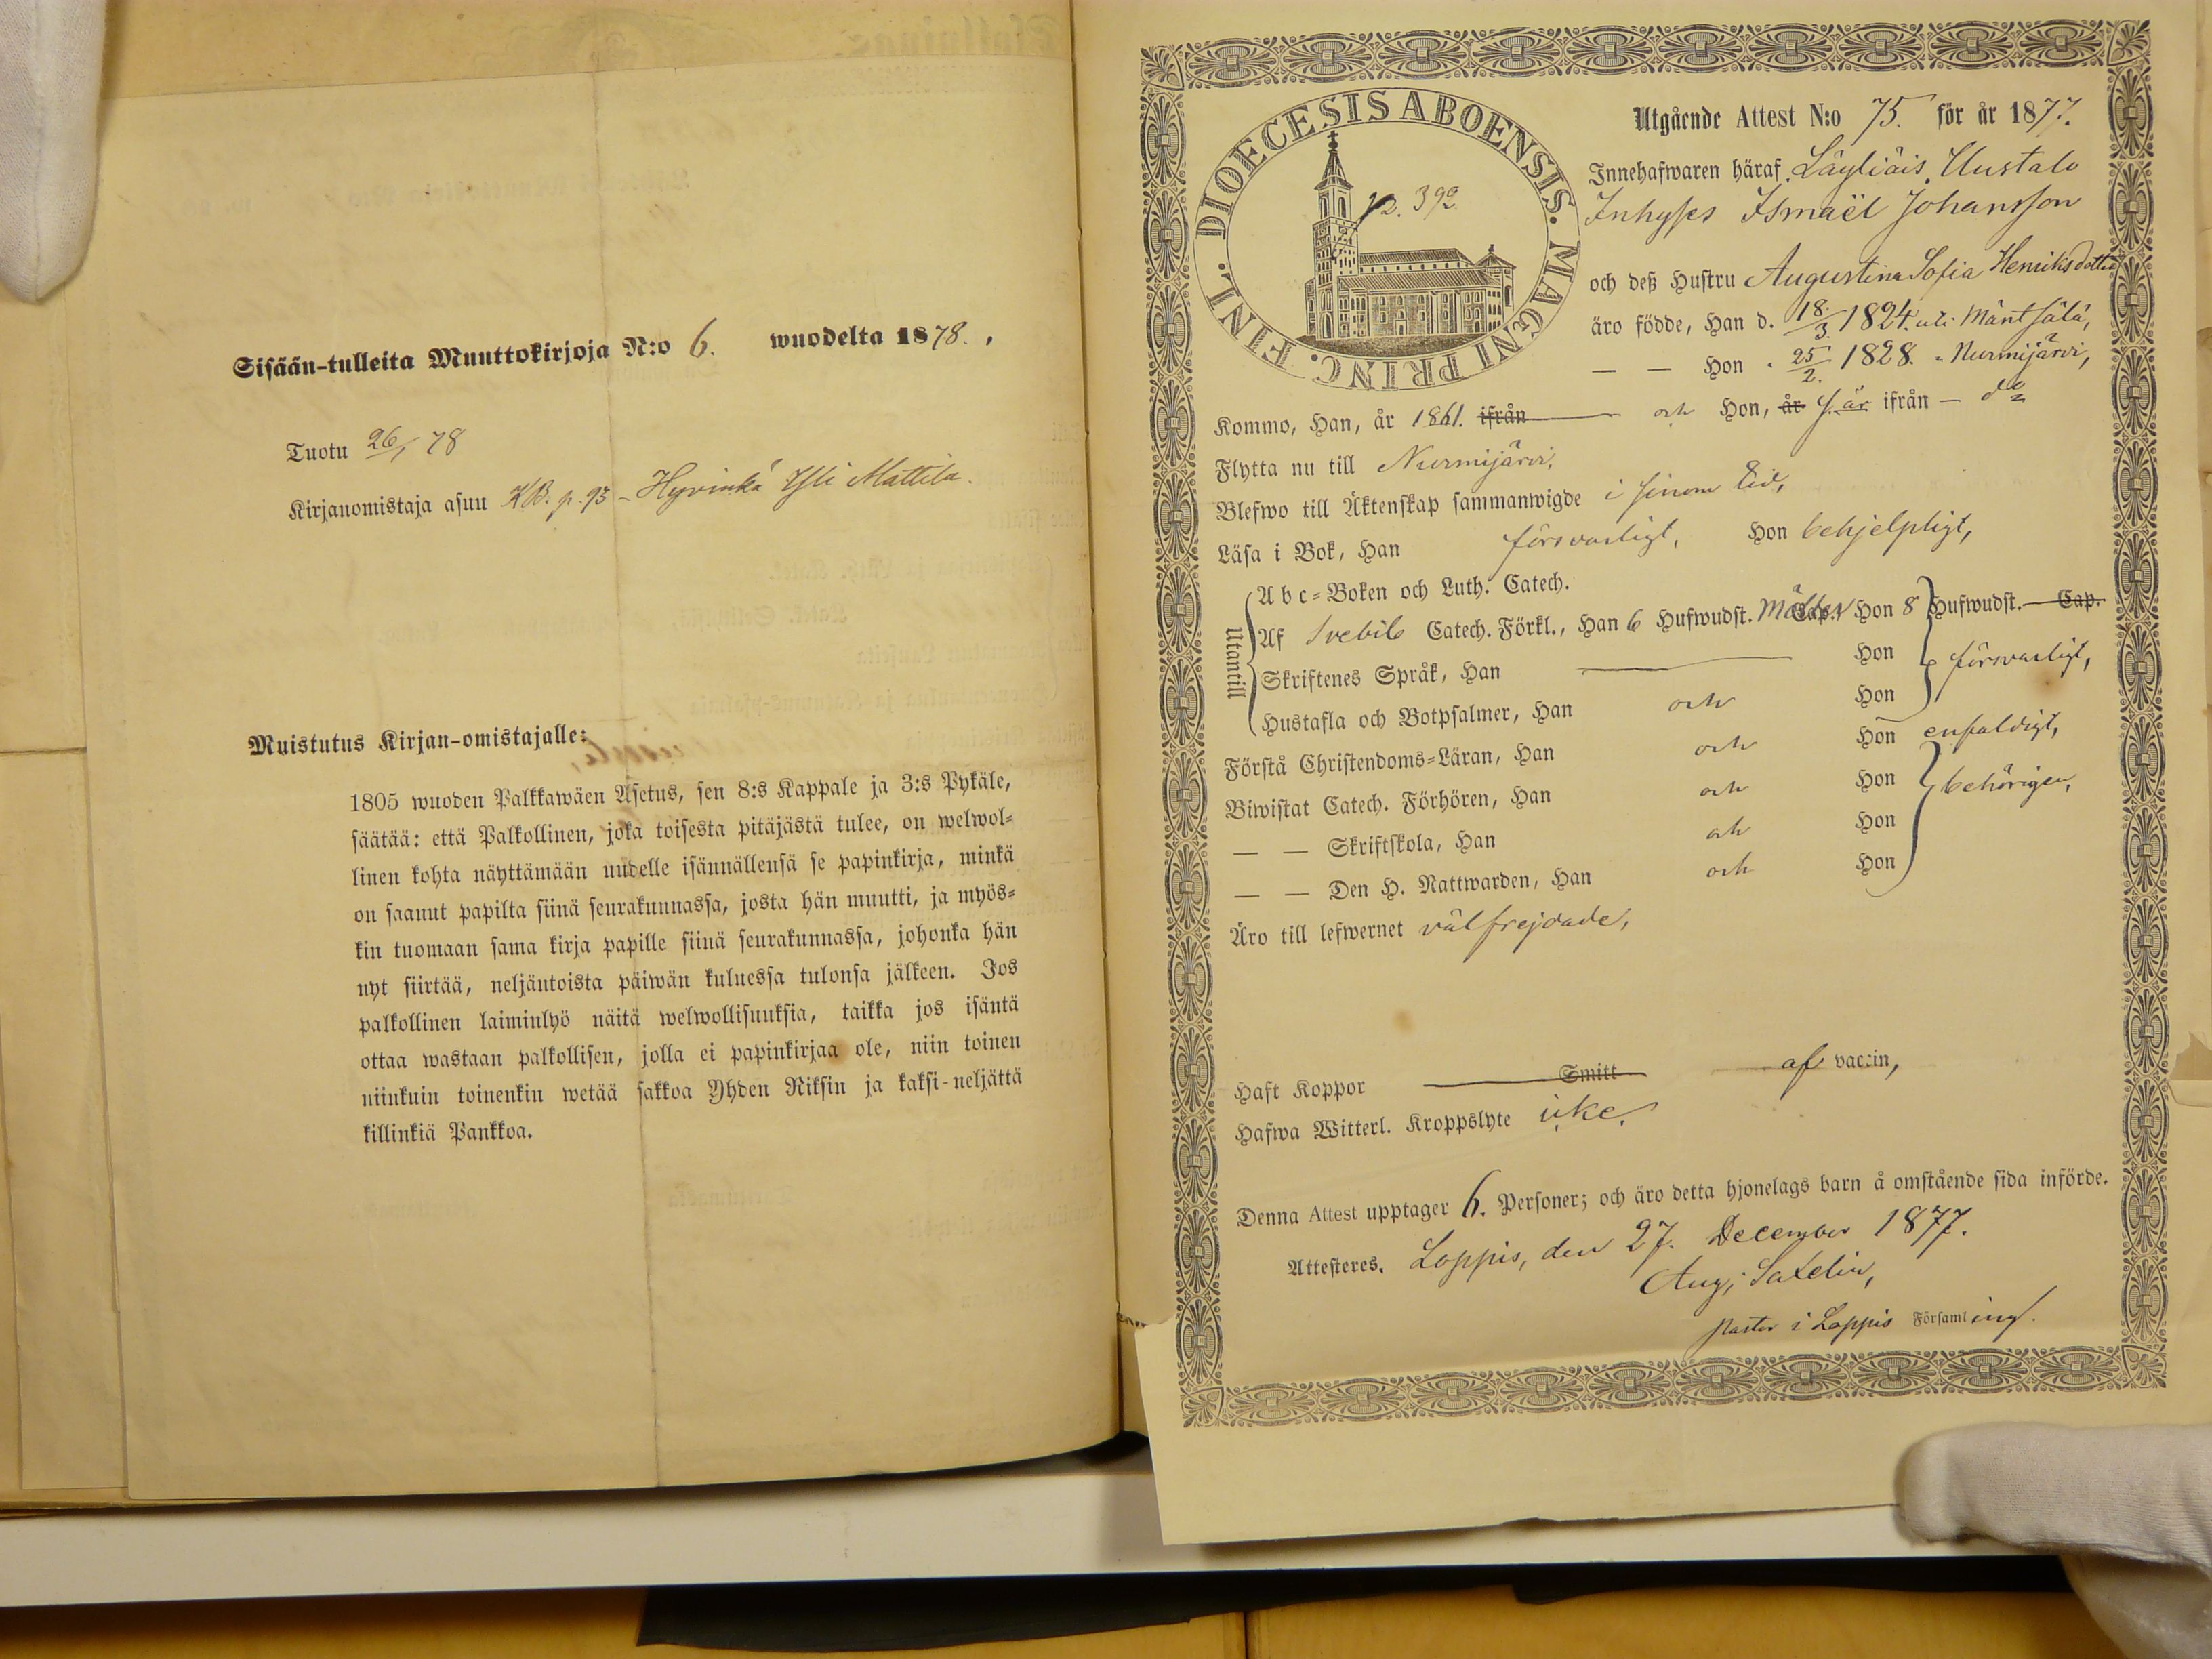 Sisään-tulleita Muuttokirjoja N:o 6. wuodelta 1878.
Tuotu 26/1 78
Kirjanomistaja asuu KB. p. 93 – Hyvinkä Yli Mattila.
Muistutus Kirjan-omistajalle:
1805 wuoden Palkkawäen Asetus, sen 8:s Kappale ja 3:s Pykäle,
säätää: että Palkollinen, joka toisesta pitäjästä tulee, on welwol=
linen kohta näyttämään uudelle isännällensä se papinkirja, minkä
on saanut papilta siinä seurakunnassa, josta hän muutti, ja myös=
kin tuomaan sama kirja papille siinä seurakunnassa, johonka hän
nyt siirtää, neljäntoista päiwän kuluessa tulonsa jälkeen. Jos
palkollinen laiminlyö näitä welwollisuuksia, taikka jos isäntä
ottaa wastaan palkollisen, jolla ei papinkirjaa ole, niin toinen
niinkuin toinenkin wetää sakkoa Yhden Riksin ja kaksi-neljättä
killinkiä Pankkoa.
DIOECESIS ABOENSIS. MAGNI PRINC. FINL.
p. 392
Utgående Attest N:o 75. för år 1877.
Innehafwaren häraf Läyliäis, Uustalo
Inhyses Ismaël Johansson
och deß Hustru Augustina Sofia Henriksdotter
äro födde, Han d. 18/3. 1824. uti Mäntsälä,
— — Hon " 25/2. 1828. " Nurmijärvi,
Kommo, Han, år 1861. ifrån och Hon, år s. år ifrån — do
Flytta nu till Nurmijärvi,
Blefwo till Äktenskap sammanwigde i sinom tid,
Läsa i Bok, Han försvarligt, Hon behjelpligt,
Utantill
A b c=Boken och Luth. Catech.
Af Svebil. Catech. Förkl., Han 6 Hufwudst. Cap. Hon 8 Hufwudst. Cap.
Skriftenes Språk, Han Hon försvarligt,
Hustafla och Botpsalmer, Han och Hon
Förstå Christendoms=Läran, Han och Hon enfaldigt,
Biwistat Catech. Förhören, Han och Hon behörigen,
— — Skriftskola, Han och Hon
— — Den H. Nattwarden, Han och Hon
Äro till lefwernet välfrejdade,
Haft Koppor Smitt af vaccin,
Hafwa Witterl. Kroppslyte icke.
Denna Attest upptager 6. Personer; och äro detta hjonelags barn å omstående sida införde.
Attesteres. Loppis, den 27. December 1877.
Aug. Saxelin,
Pastor i Loppis Församling.